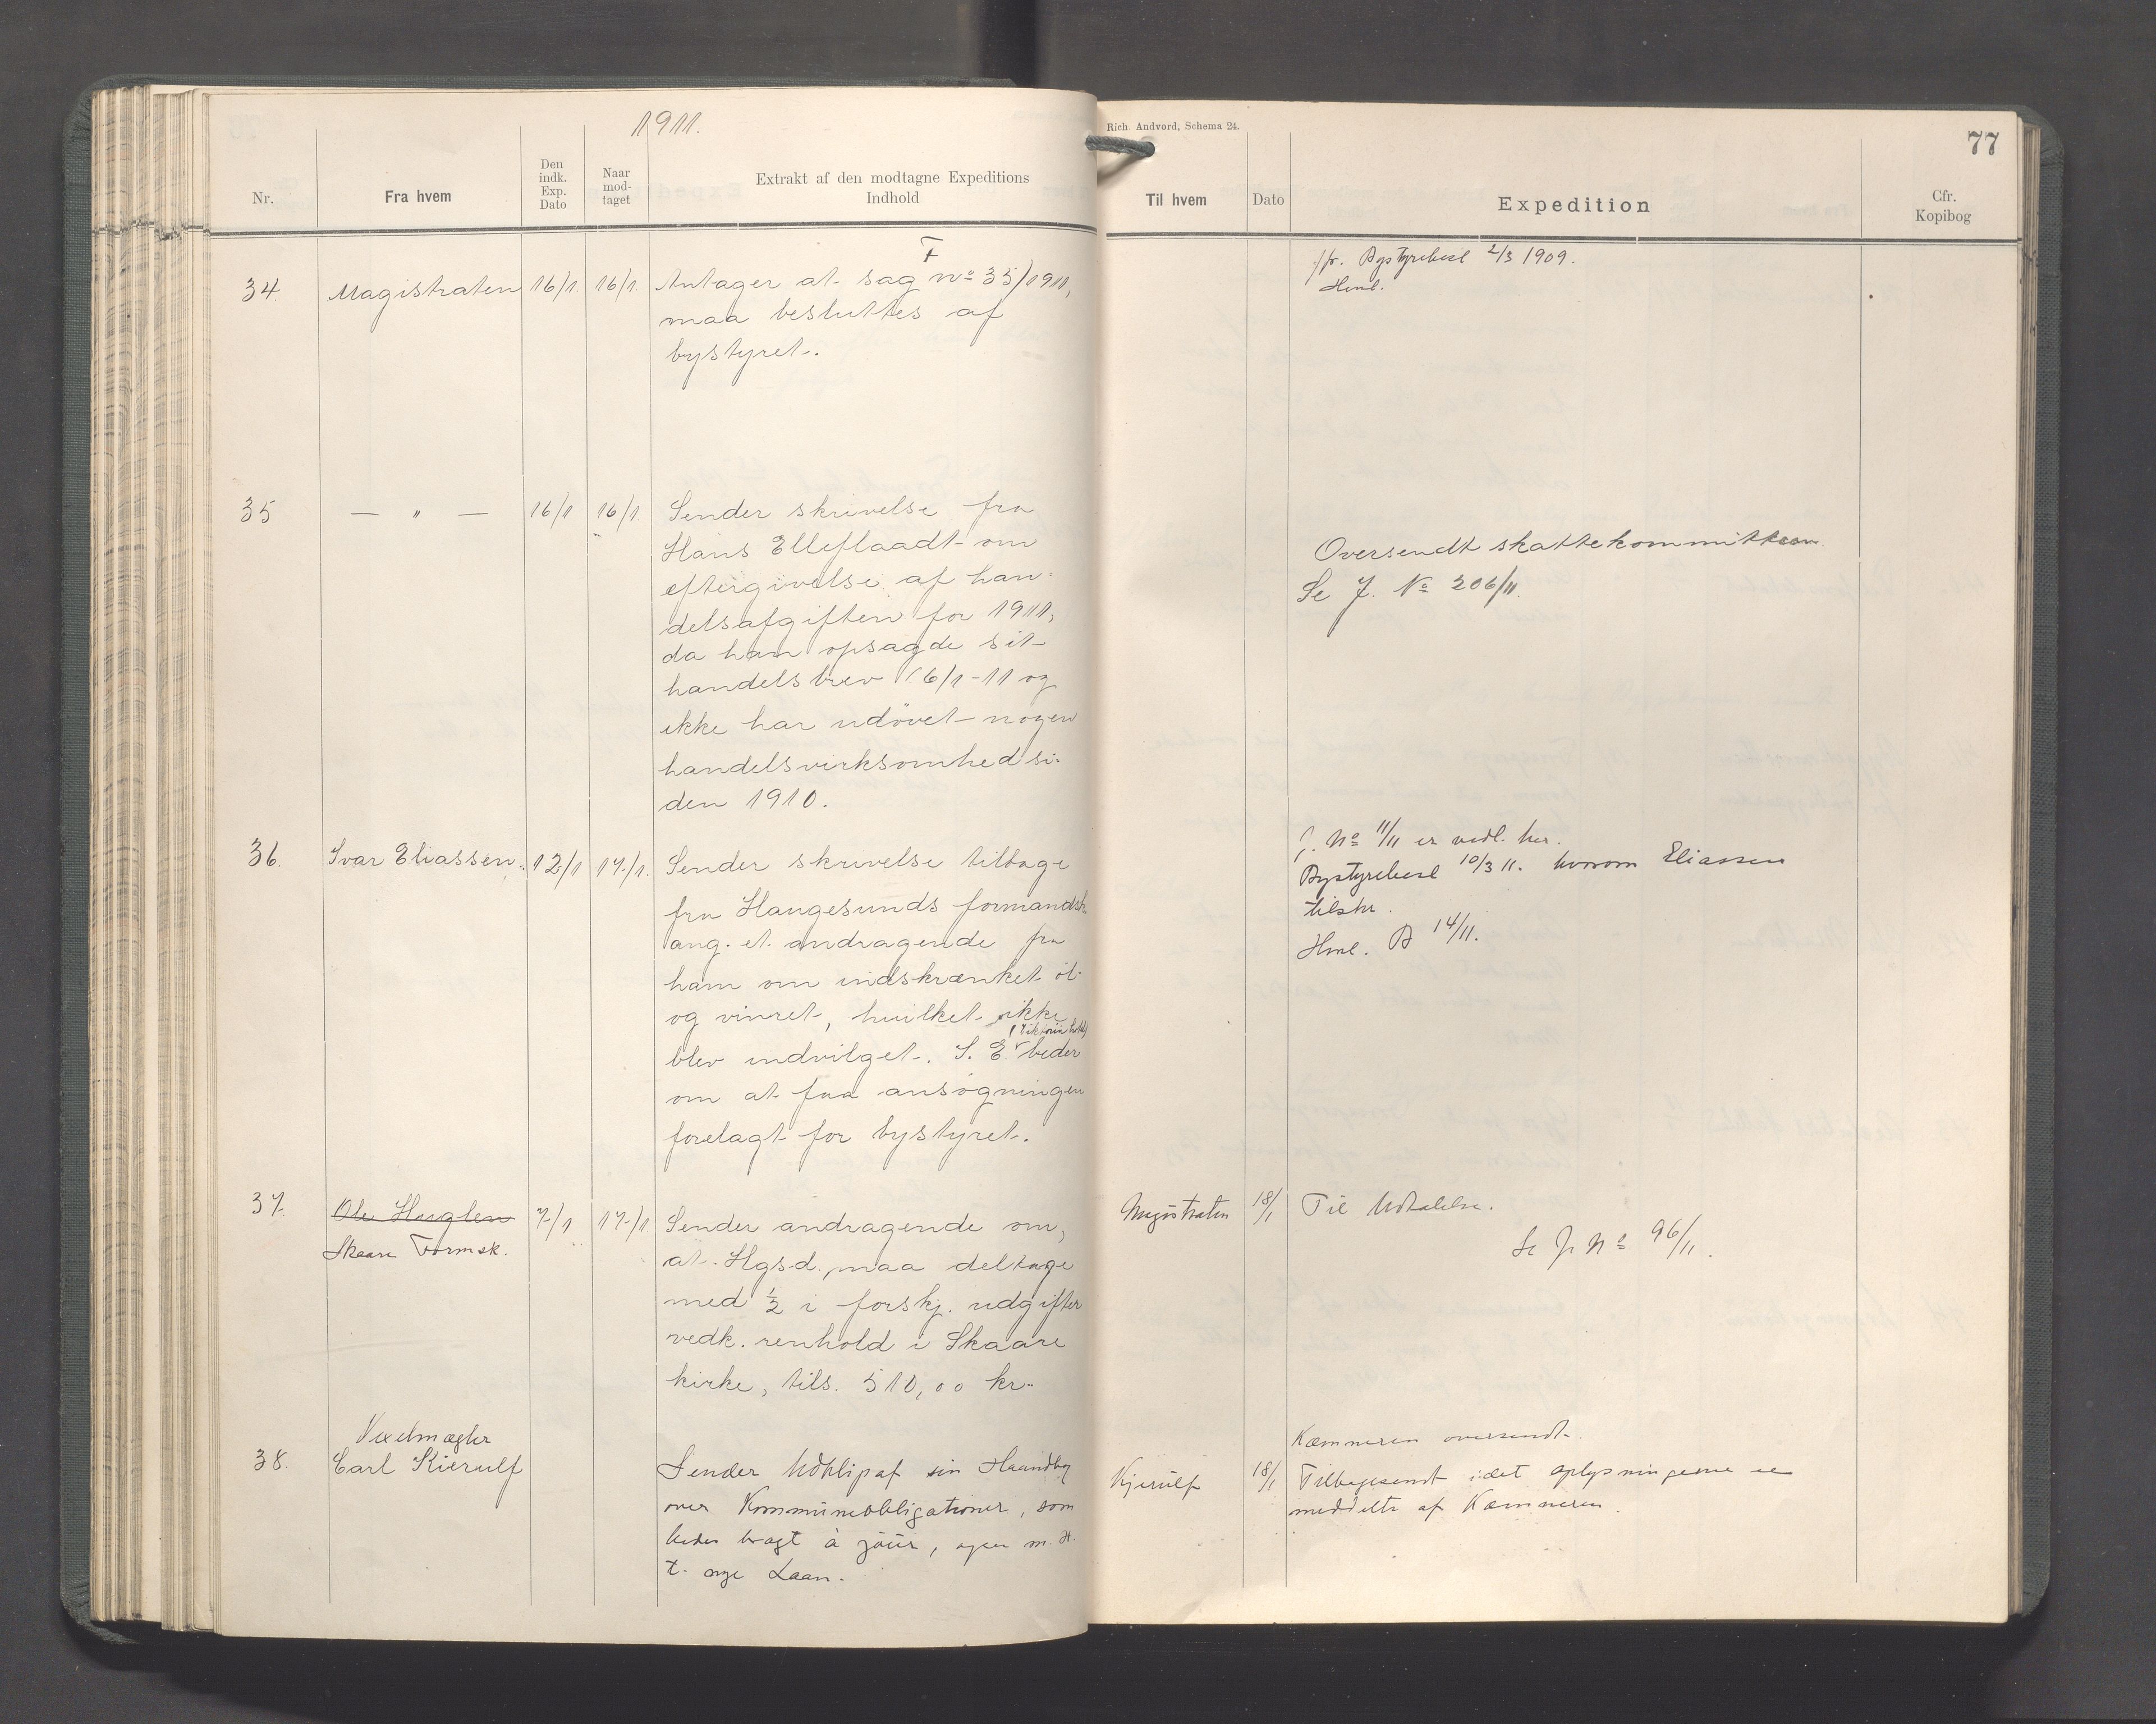 1911.
Rich. Andvord, Schema 24.
77
Nr.
Fra hvem
Den
indk.
Exp.
Dato
Naar
mod-
taget
Extrakt af den modtagne Expeditions
Indhold
Til hvem
Dato
Expedition
Cfr.
Kopibog
34.
Magistraten
16/1.
16/1.
Antager at sag No 35/1911,
maa besluttes af
bystyret.
Bystyrebesl 2/3 1909.
Henl.
35
— " —
16/1
16/1
Sender skrivelse fra
Hans Elleflaadt om
eftergivelse af han-
delsafgiften for 1911,
da han opsagde sit
handelsbrev 16/1-11 og
ikke har udövet nogen
handelsvirksomhed si-
den 1910.
Oversendt skattekommitteen.
Se J. No 206/11.
36.
Ivar Eliassen.
12/1
17/1.
Sender skrivelse tilbage
fra Haugesunds formandsk.
ang. et andragende fra
ham om indskrænket öl-
og vinret, hvilket ikke
blev indvilget. I. E. beder
om at faa ansögningen
forelagt for bystyret.
J. No 11/11 er vedl. her.
Bystyrebesl 10/3 11. hvorom Eliassen
tilskr.
Henl. B 14/11.
37.
Ole Huglen
Skaare Formsk.
7/1
17/1
Sender andragende om,
at Hgsd. maa deltage
med 1/2 i forskj. udgifter
vedk. renhold i Skaare
kirke, tils. 510,00 kr.
Magistraten
18/1
Til Udtalelse.
Se J. No 96/11.
38.
Vexelmægler
Carl Kierulf
Sender Udklip af sin Haandbog
over Kommuneobligationer, som
bedes bragt à jour, ogsaa m. H.
t. nye Laan.
Kjerulf
18/1
Kæmneren oversendt.
Tilbagesendt idet oplysningerne er
meddelt af Kæmneren.